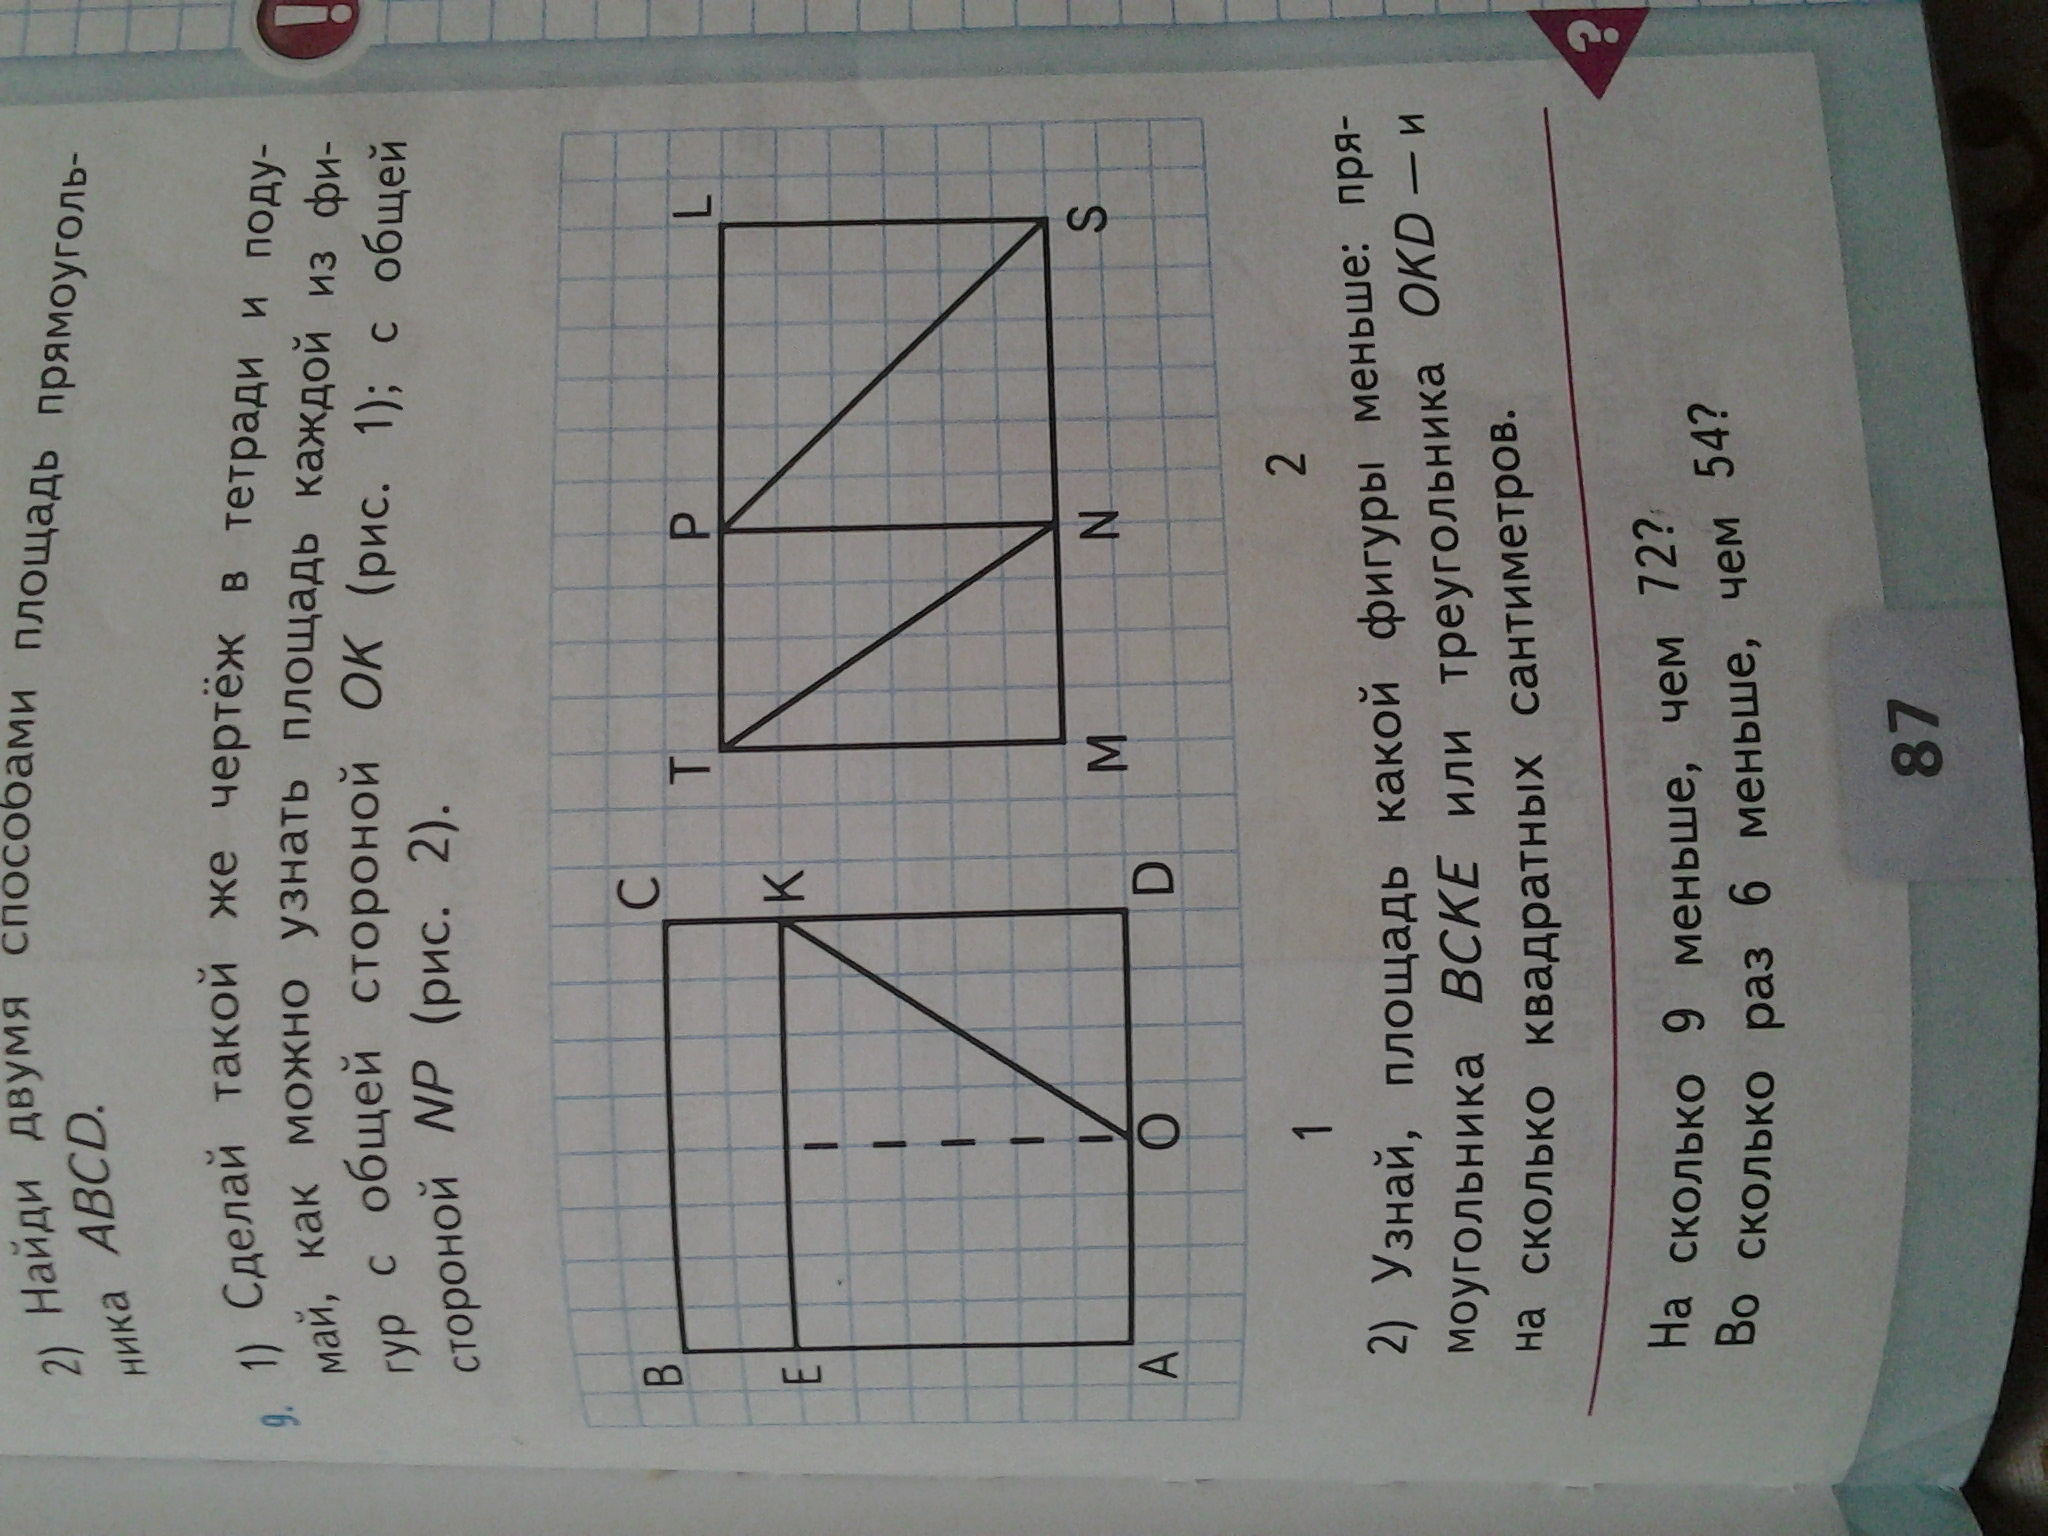 2) Найди двумя способами площадь прямоуголь-
ника ABCD.
9. 1) Сделай такой же чертёж в тетради и поду-
май, как можно узнать площадь каждой из фи-
гур с общей стороной OK (рис. 1); с общей
стороной NP (рис. 2).
B C
E K
A O D
T P L
M N S
1 2
2) Узнай, площадь какой фигуры меньше: пря-
моугольника BCKE или треугольника OKD — и
на сколько квадратных сантиметров.
На сколько 9 меньше, чем 72?
Во сколько раз 6 меньше, чем 54?
87
!
?